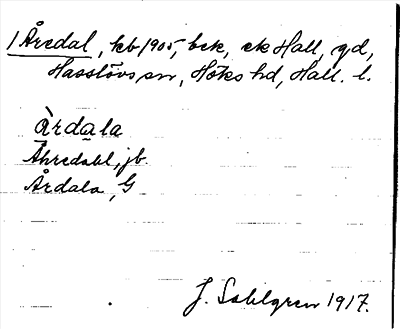 1 Åredal, kb 1905, bek, ek Hall, gd,
Hasslövs sn, Höks hd, Hall. l.
àrdala
Åhredahl, jb
Årdala, G
J. Sahlgren 1917.